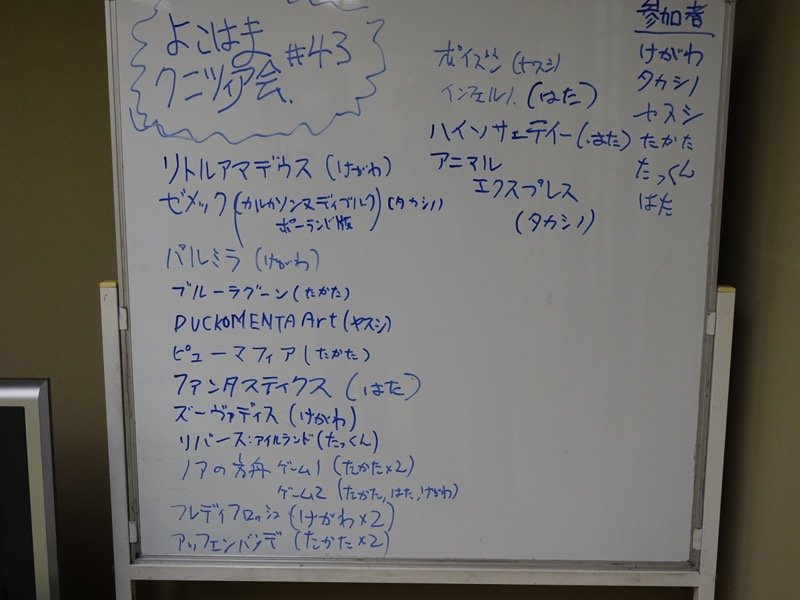 よこはま
クニツィア会 #43
リトルアマデウス(けがわ)
ゼメック(カルカソンヌディブルク)(タカシノ)
ポーランド版
パルミラ(けがわ)
ブルーラグーン(たかた)
DUCKOMENTA Art(ヤスシ)
ピューマフィア(たかた)
ファンタスティクス(はた)
ズーヴァディス(けがわ)
リバース:アイルランド(たっくん)
ノアの方舟 ゲーム1(たかた×2)
ゲーム2(たかた,はた,けがわ)
フレディフロッシュ(けがわ×2)
アッフェンバンデ(たかた×2)
ポイズン(ヤスシ)
インフェルノ(はた)
ハイソサエティー(はた)
アニマル
エクスプレス
(タカシノ)
参加者
けがわ
タカシノ
ヤスシ
たかた
たっくん
はた